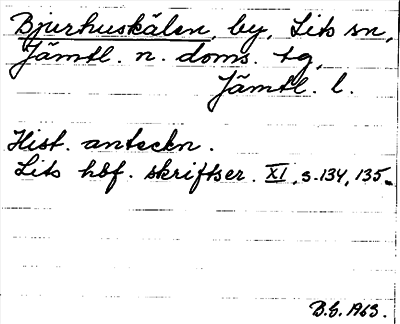 Bjurhuskälen, by, Lits sn,
Jämtl. n. doms. tg,
Jämtl. l.
Hist. anteckn.
Lits hbf. skriftser. XI, s. 134, 135.
B.E. 1963.